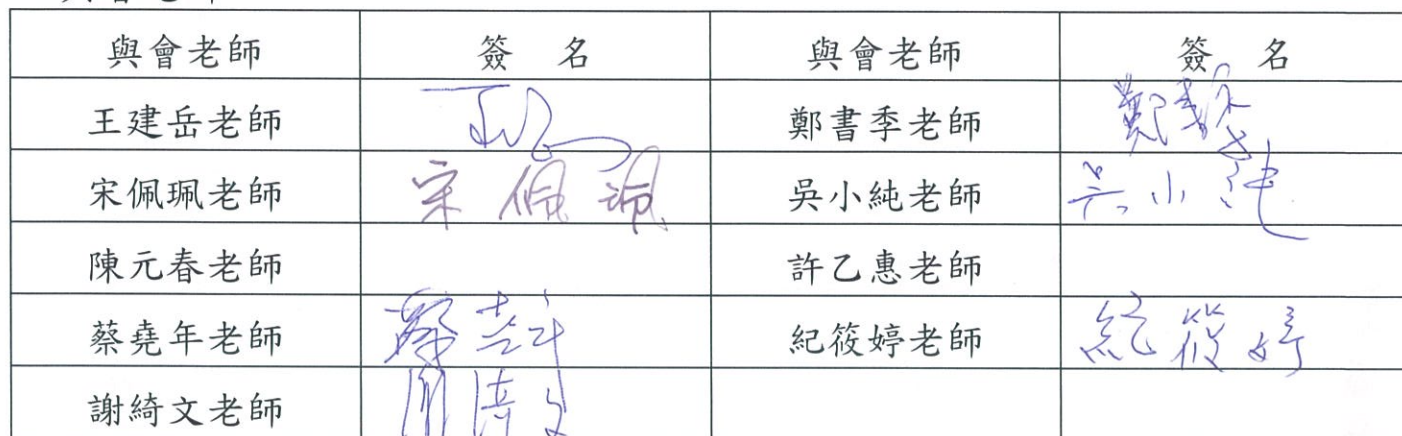 與會老師 簽 名 與會老師 簽 名
王建岳老師 鄭書季老師
宋佩珮老師 宋佩珮 吳小純老師 吳小純
陳元春老師 許乙惠老師
蔡堯年老師 紀筱婷老師 紀筱婷
謝綺文老師